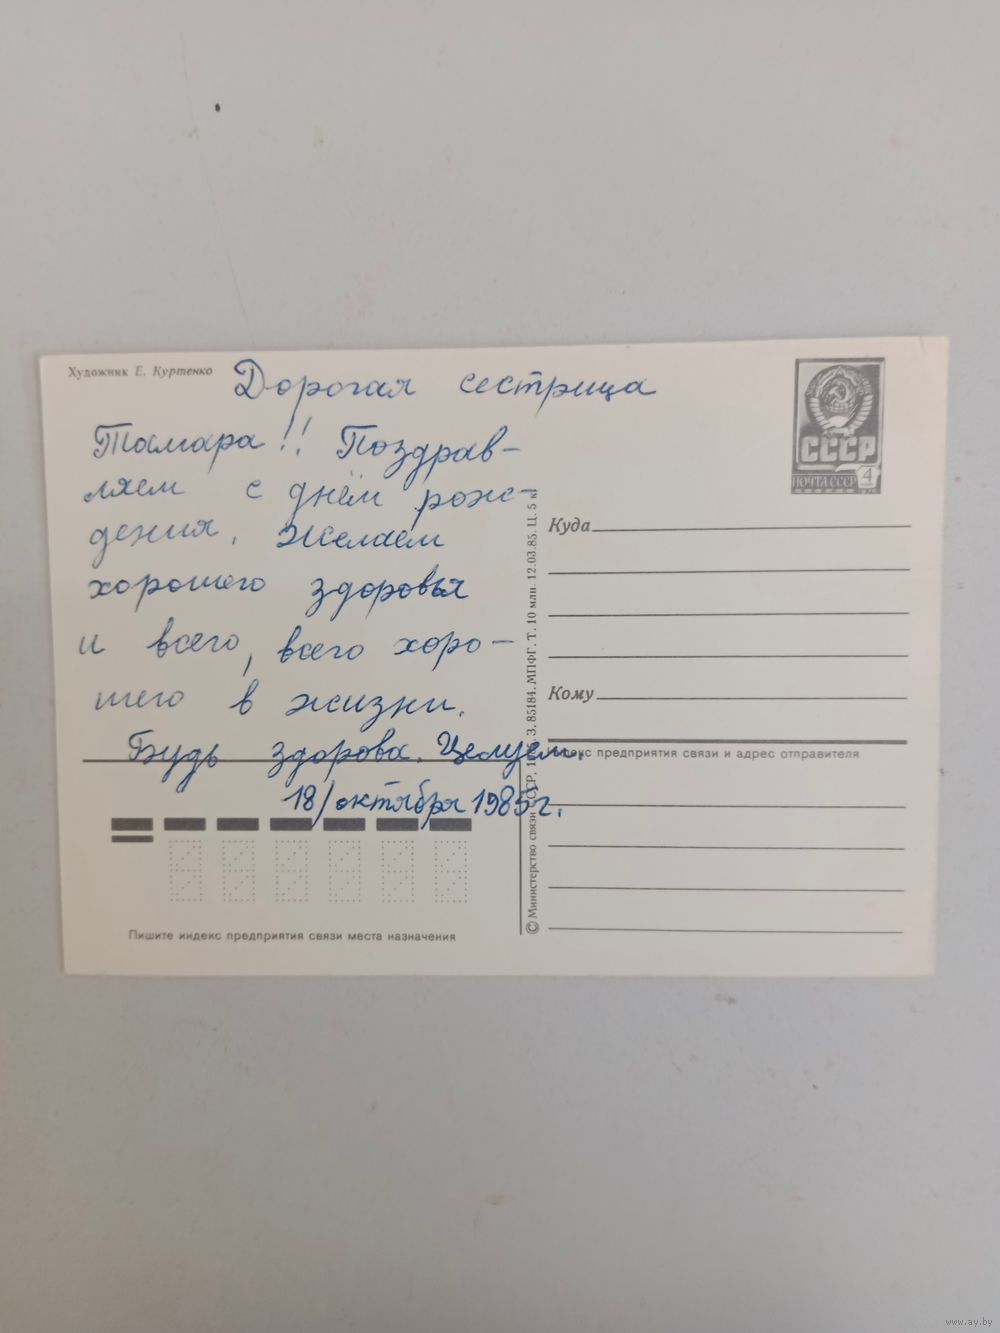 Художник Е. Куртенко
Дорогая сестрица
Тамара!! Поздрав-
ляем с днём рож-
дения. Желаем
хорошего здоровья
и всего, всего хоро-
шего в жизни.
Будь здорова. Целуем.
18/октября 1985г.
Пишите индекс предприятия связи места назначения
© Министерство связи СССР, З. 85184. МПФГ. Т. 10 млн. 12.03.85. Ц. 5 к
СССР
ПОЧТА СССР 4
Куда
Кому
Индекс предприятия связи и адрес отправителя
www.ay.by